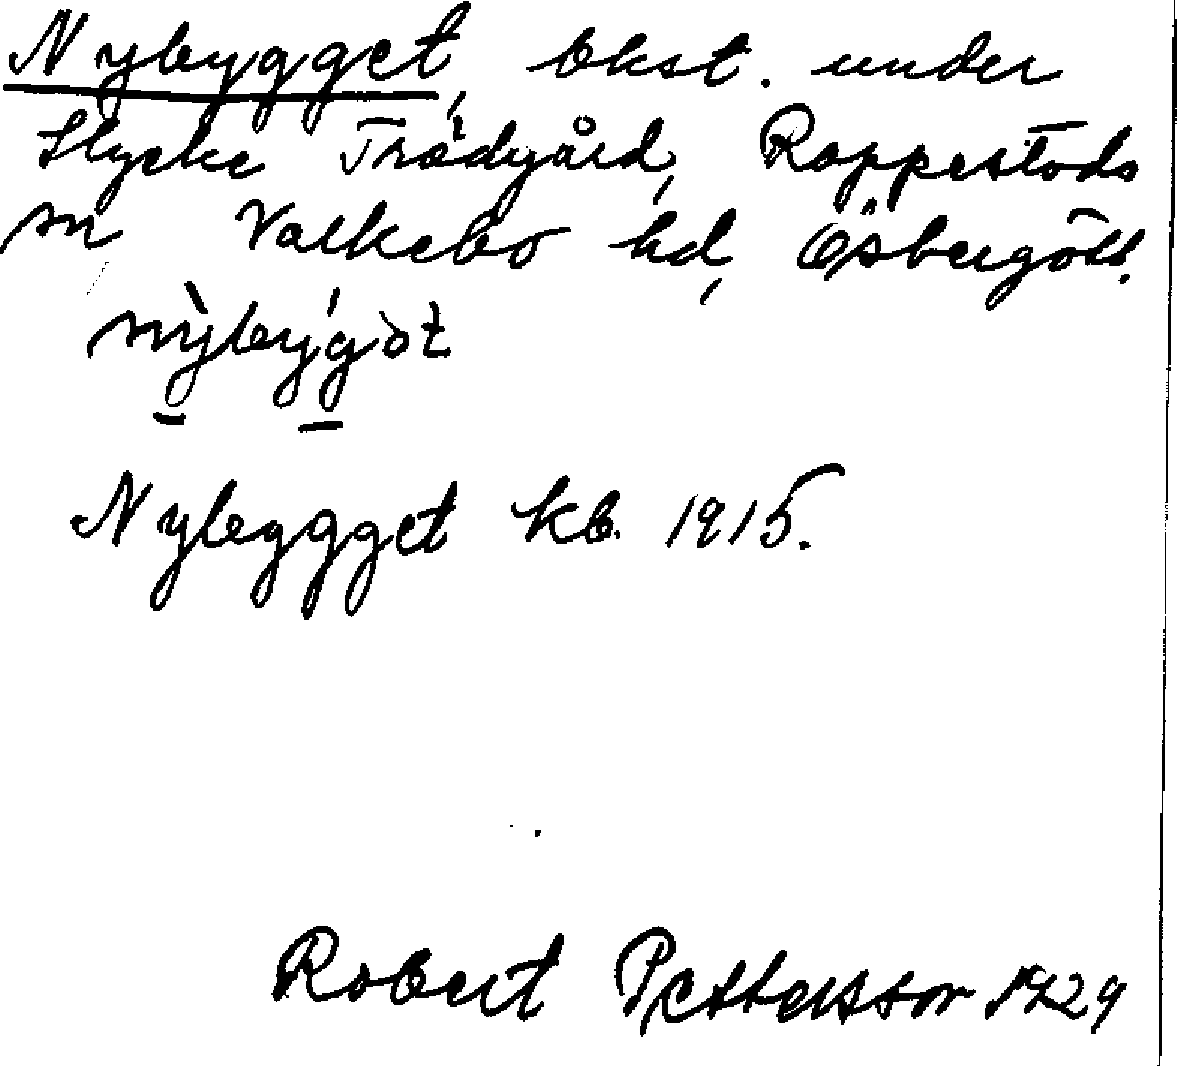 Nybygget, bkst. under
Stycke Trädgård, Rappestads
sn Valkebo hd, Östergötl.
nỳbýgət
Nybygget kb. 1915.
Robert Pettersson 1929